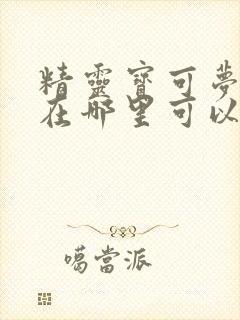 精靈寶可夢
在哪里可以
噶當派